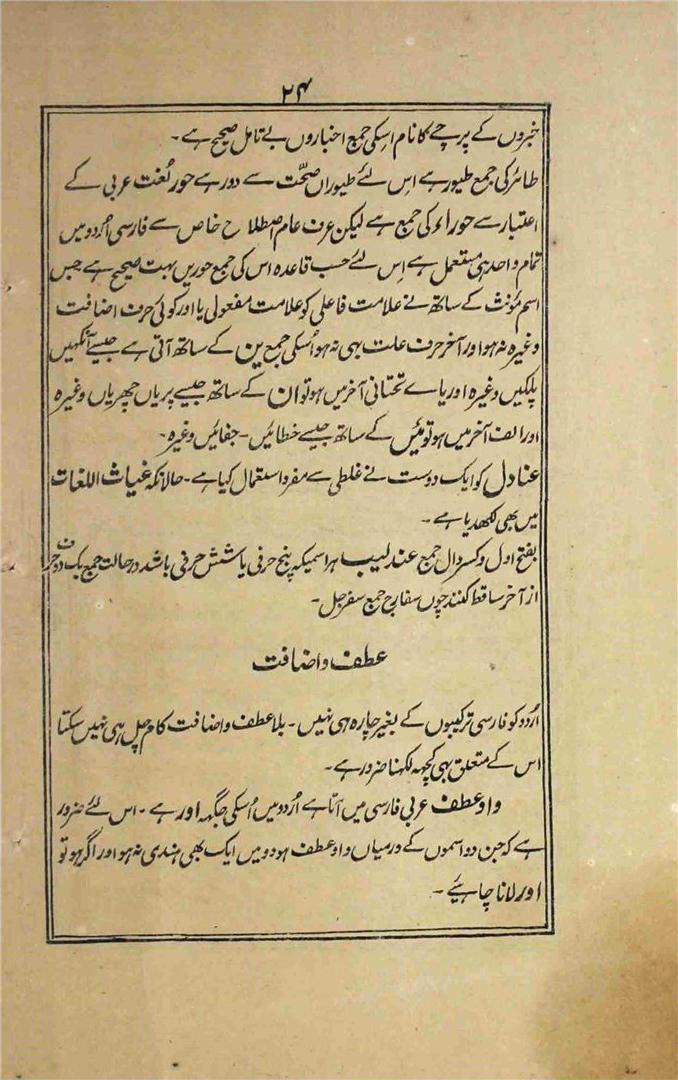 ۲۴
خبروں کے پرچے کا نام اسکی جمع اخباروں بے تامل صحیح ہے۔
طائر کی جمع طیور ہے اس لئے طیوراں صحّت سے دور ہے حور لُغت عربی کے
اعتبار سے حوراء کی جمع ہے لیکن عرف عام اصطلاح خاص سے فارسی اُردو میں
تمام واحد ہی مستعمل ہے اِس لئے حسب قاعدہ اس کی جمع حوریں بہت صحیح ہے جس
اسم مؤنث کے ساتھ نے علامت فاعلی کو علامت مفعولی یا اور کوئی حرف اضافت
وغیرہ نہ ہو اور آخر حرف علت بھی نہ ہو اُسکی جمع ین کے ساتھ آتی ہے جیسے آنکھیں
پلکیں وغیرہ اور یاے تحتانی آخر میں ہو تو ان کے ساتھ جیسے پریاں چھریاں وغیرہ
اور الف آخر میں ہو تو ئیں کے ساتھ جیسے خطائیں۔ جفائیں وغیرہ۔
عنادل کو ایک دوست نے غلطی سے مفرد استعمال کیا ہے۔ حالانکہ غیاث اللغات
میں بھی لکھدیا ہے۔
بفتح اول و کسر دال جمع عندلیب ہر اسمیکہ پنج حرفی یا شش حرفی باشد در حالت جمع یک دو حرف
از آخر ساقط کنند چوں سفارج جمع سفرجل۔
عطف و اضافت
اُردو کو فارسی ترکیبوں کے بغیر چارہ ہی نہیں۔ بلا عطف و اضافت کام چل ہی نہیں سکتا
اس کے متعلق بھی کچھ لکھنا ضرور ہے۔
واو عطف عربی فارسی میں آتا ہے اُردو میں اُسکی جگہہ اور ہے۔ اس لئے ضرور
ہے کہ جن دو اسموں کے درمیاں واو عطف ہو دو میں ایک بھی ہندی نہ ہو اور اگر ہو تو
اور لانا چاہئیے۔